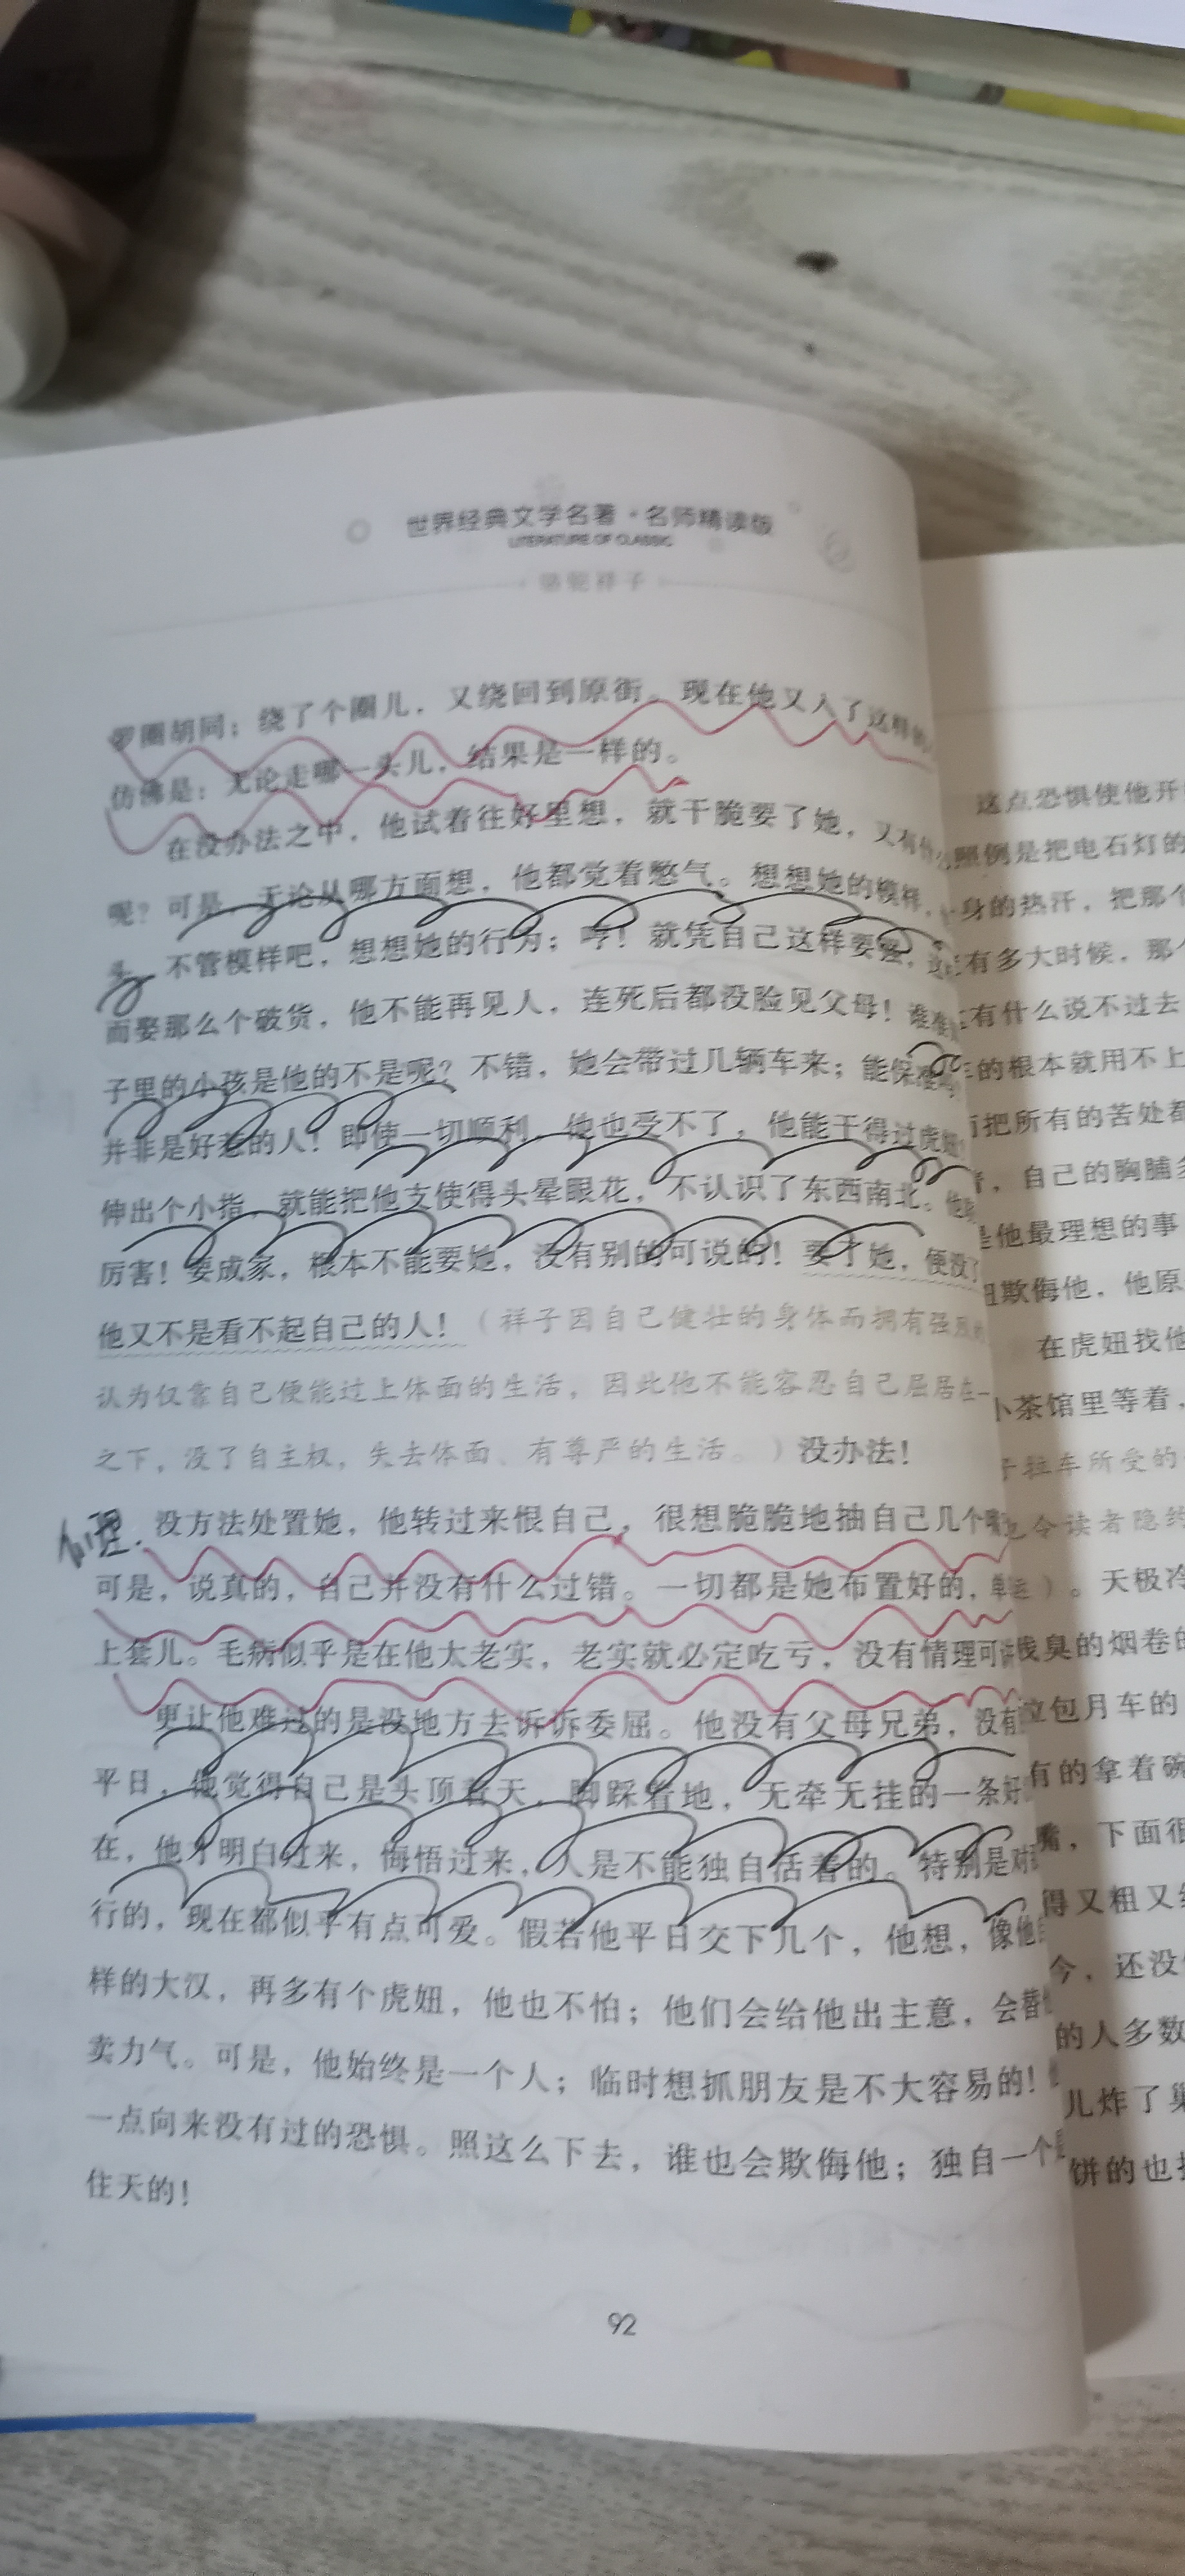 世界经典文学名著·名师精读版
LITERATURE OF CLASSIC
骆驼祥子
罗圈胡同；绕了个圈儿，又绕回到原街。现在他又入了这样的
仿佛是：无论走哪一头儿，结果是一样的。
在没办法之中，他试着往好里想，就干脆要了她，又有什
呢？可是，无论从哪方面想，他都觉着憋气。想想她的模样，
头。不管模样吧，想想她的行为；哼！就凭自己这样要强，这
而娶那么个破货，他不能再见人，连死后都没脸见父母！谁准
子里的小孩是他的不是呢？不错，她会带过几辆车来；能保准吗
并非是好惹的人！即使一切顺利，他也受不了，他能干得过虎妞
伸出个小指，就能把他支使得头晕眼花，不认识了东西南北。他
厉害！要成家，根本不能要她，没有别的可说的！要了她，便没了
他又不是看不起自己的人！（祥子因自己健壮的身体而拥有强烈的
认为仅靠自己便能过上体面的生活，因此他不能容忍自己屈居在
之下，没了自主权，失去体面、有尊严的生活。）没办法！
心理.
没方法处置她，他转过来恨自己，很想脆脆地抽自己几个嘴
可是，说真的，自己并没有什么过错。一切都是她布置好的，单
上套儿。毛病似乎是在他太老实，老实就必定吃亏，没有情理可讲
更让他难过的是没地方去诉诉委屈。他没有父母兄弟，没有
平日，他觉得自己是头顶着天，脚踩着地，无牵无挂的一条好
在，他才明白过来，悔悟过来，人是不能独自活着的。特别是对
行的，现在都似乎有点可爱。假若他平日交下几个，他想，像他
样的大汉，再多有个虎妞，他也不怕；他们会给他出主意，会替
卖力气。可是，他始终是一个人；临时想抓朋友是不大容易的！
一点向来没有过的恐惧。照这么下去，谁也会欺侮他；独自一个
住天的！
92
这点恐惧使他开
照例是把电石灯的
身的热汗，把那个
有多大时候，那
有什么说不过去
的根本就用不上
把所有的苦处都
，自己的胸脯
是他最理想的事
欺侮他，他原
在虎妞找他
小茶馆里等着，
子拉车所受的
令读者隐约
）。天极冷
钱臭的烟卷的
拉包月车的
有的拿着碗
嘴，下面很
得又粗又
今，还没
的人多数
儿炸了巢
饼的也